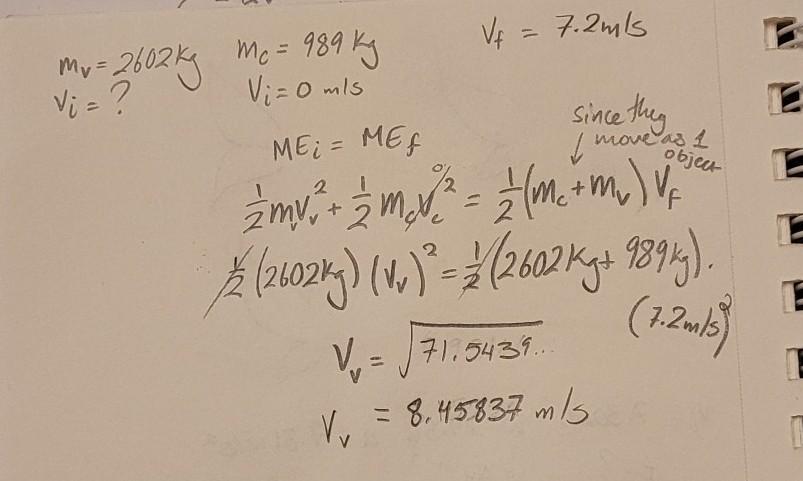 m_v = 2602kg m_c = 989 kg V_f = 7.2m/s
V_i = ? V_i = 0 m/s
since they
↓ move as 1
object
ME_i = ME_f
1/2 m_v V_v² + 1/2 m_c V_c² ⁰ = 1/2 (m_c + m_v) V_f
1/2 (2602kg) (V_v)² = 1/2 (2602kg + 989kg) ·
(7.2m/s)²
V_v = √71.5439...
V_v = 8.45837 m/s